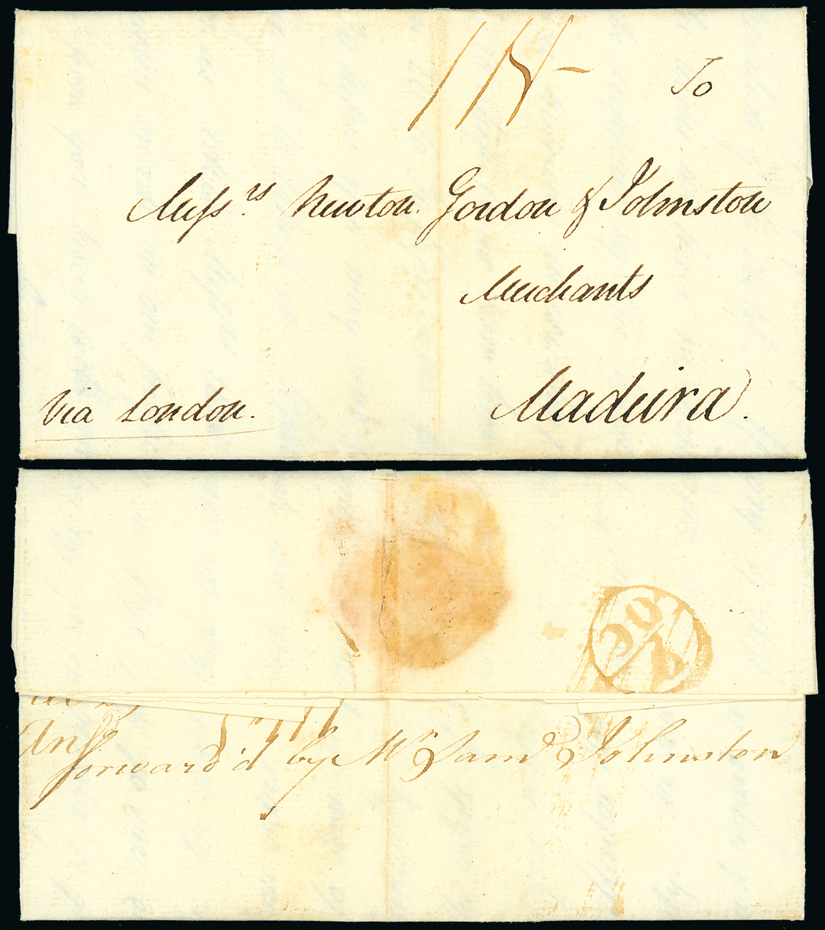 To
Messrs. Newton Gordon & Johnston
Merchants
Madeira.
Via London.
OC
Ansd
forward'd by Mr Saml Johnston